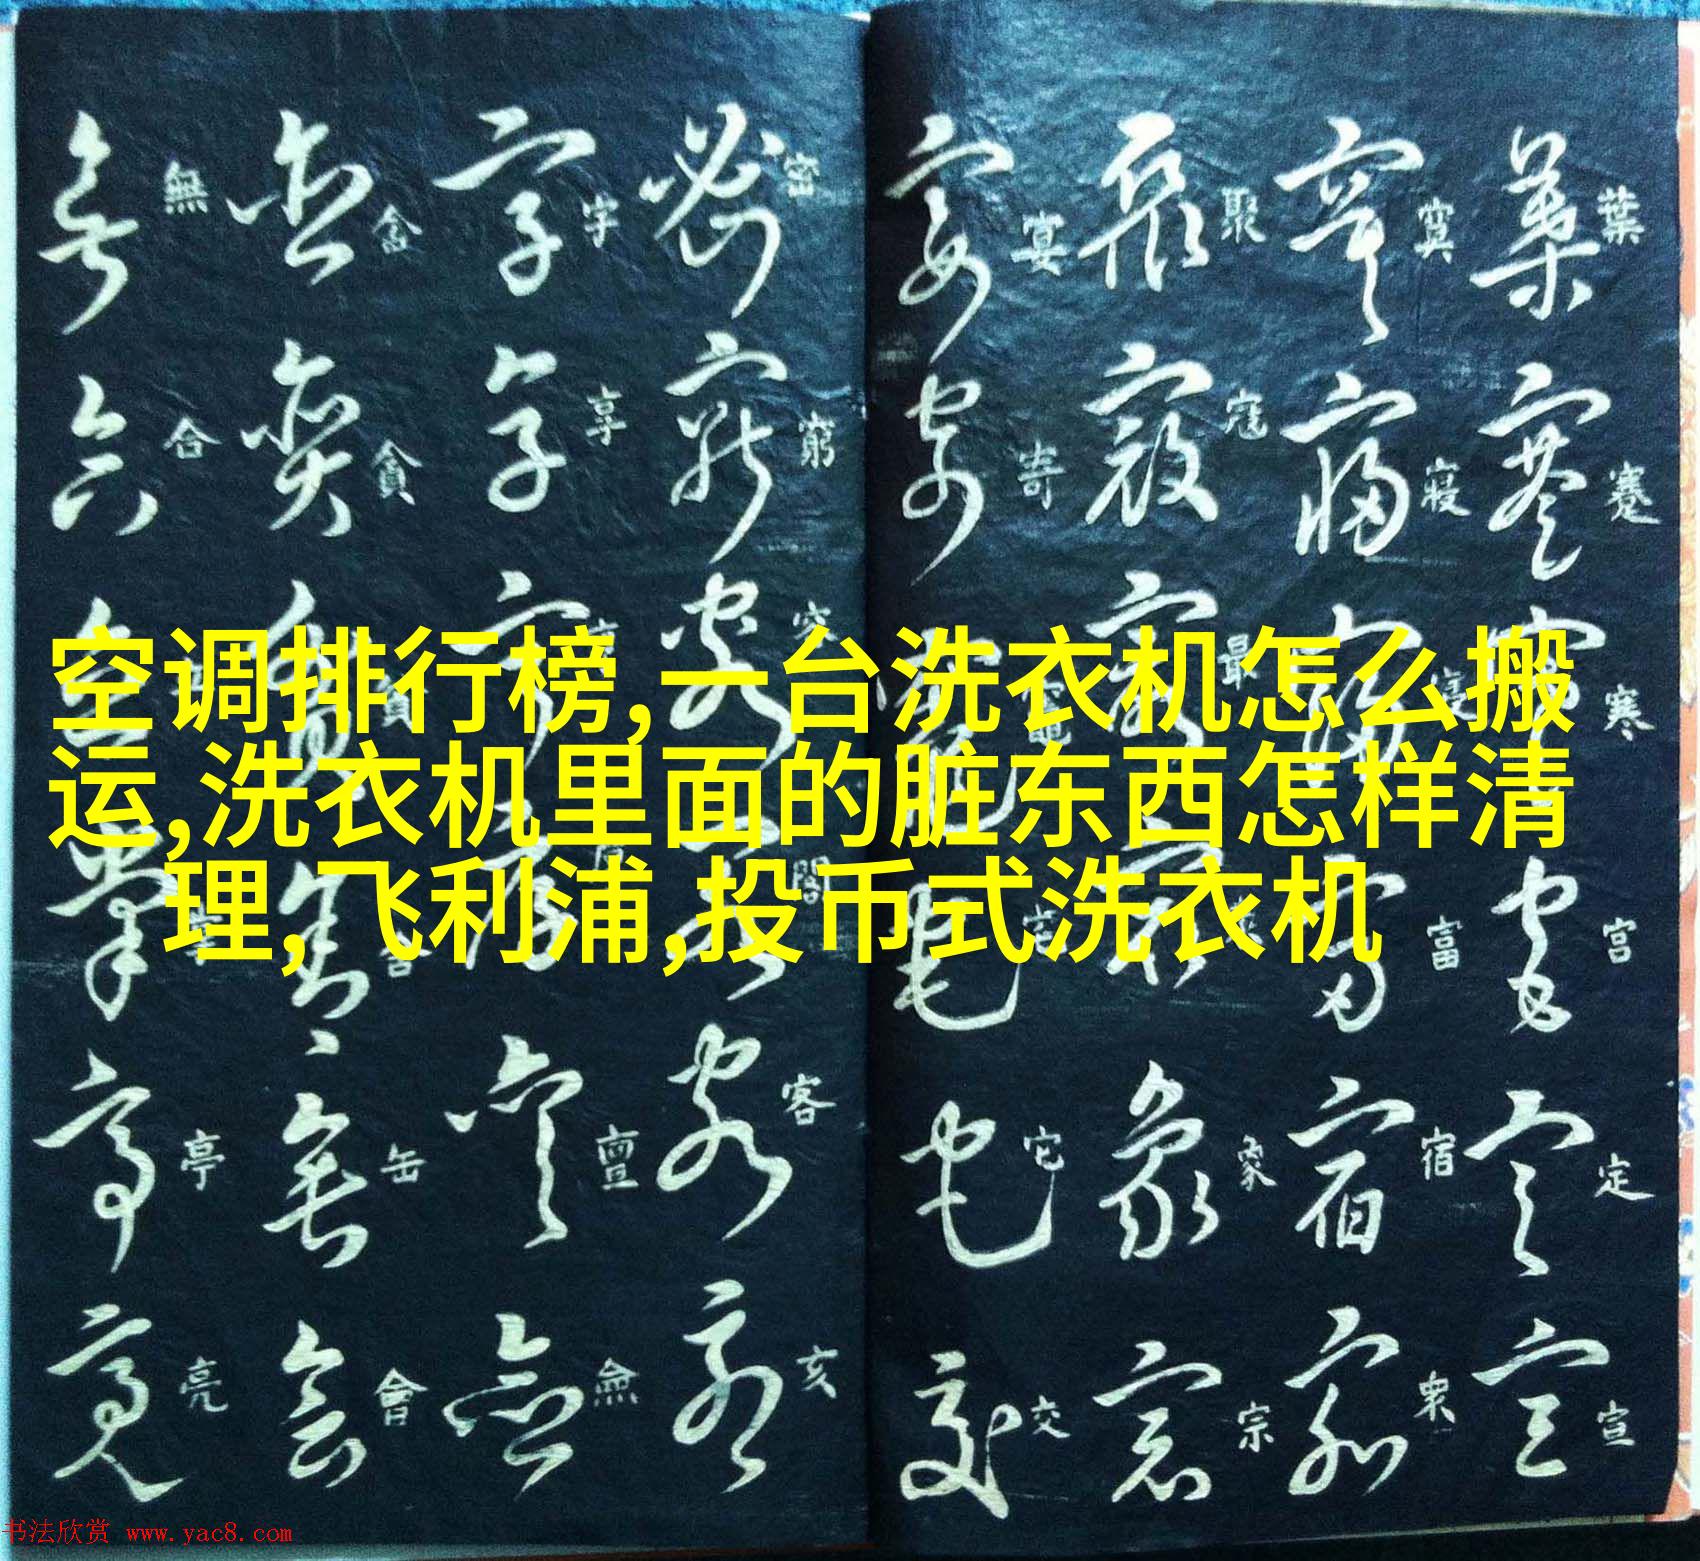 空调排行榜,一台洗衣机怎么搬
运,洗衣机里面的脏东西怎样清
理,飞利浦,投币式洗衣机
葉 蹇 寒 宫 定 宣
寞 寝 富 宿 衆
聚 寇 最 家 宗
宴 寄 竈 它 交
密 窮 客 亥
字 享 亶 僉
畣 貪 缶 會
無 合 亭 亮
书法欣赏 www.yac8.com